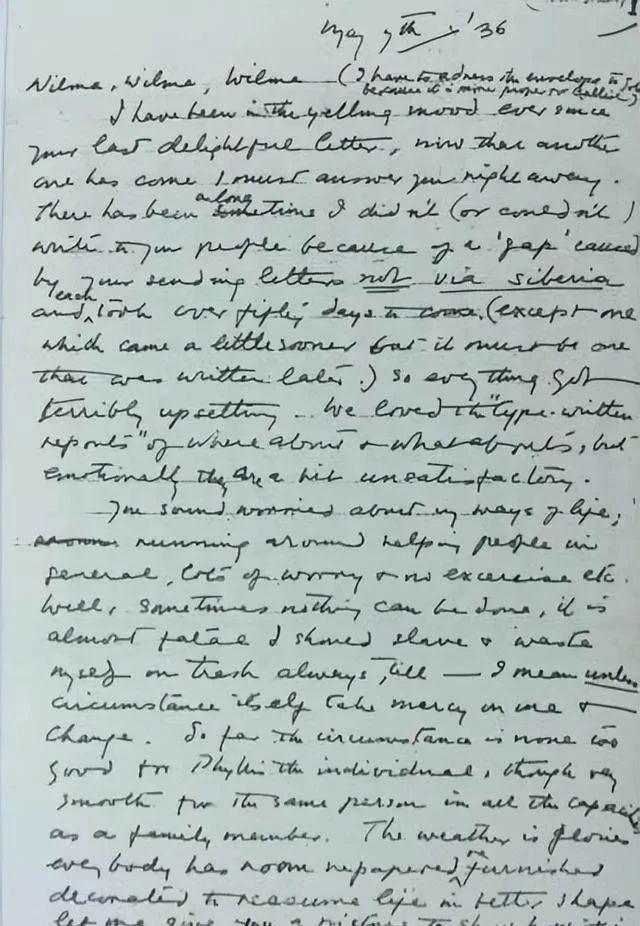 May 7th '36
Wilma, Wilma, Wilma (I have to address the envelope to
because it is more proper or
I have been in the yelling mood ever since
your last delightful letter, now that another
one has come I must answer you right away.
There has been a long sometime I didn't (or couldn't)
write to you people because of a 'gap' caused
by your sending letters not via siberia
and each took over fifty days to come. (except one
which came a little sooner but it must be one
that was written later.) So everything got
terribly upsetting. We loved the "type-written
reports" of where abouts & what abouts, but
emotionally they are a bit unsatisfactory.
You sound worried about my ways of life,
running around helping people in
general, lots of worry & no excercise etc.
Well, sometimes nothing can be done, it is
almost fatal I should slave & waste
myself on trash always, till — I mean unless
circumstance itself take mercy on me &
change. So far the circumstance is none too
good for Phyllis the individual, though very
smooth for the same person in all the capacities
as a family member. The weather is glorious
everybody has room repapered, refurnished
decorated to reassume life in better shape
let me give you a picture to show